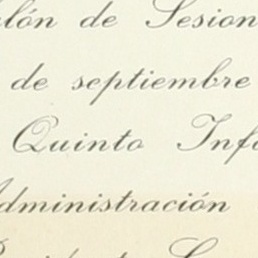 lón de Sesion
de septiembre
Quinto Info
Administración